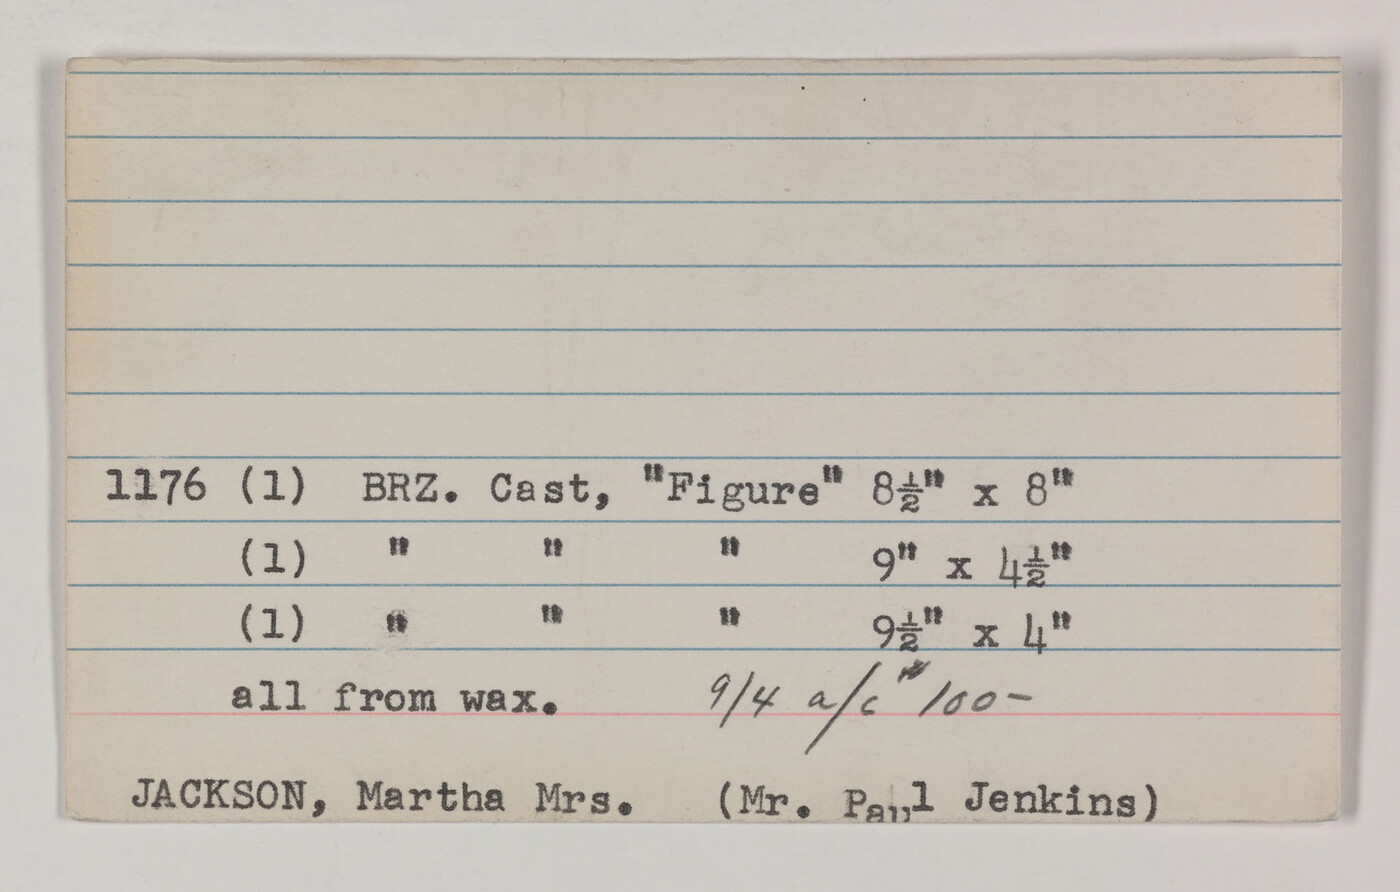 1176 (1) BRZ. Cast, "Figure" 8½" x 8"
(1) " " " 9" x 4½"
(1) " " " 9½" x 4"
all from wax. 9/4 a/c # 100-
JACKSON, Martha Mrs. (Mr. Paul Jenkins)